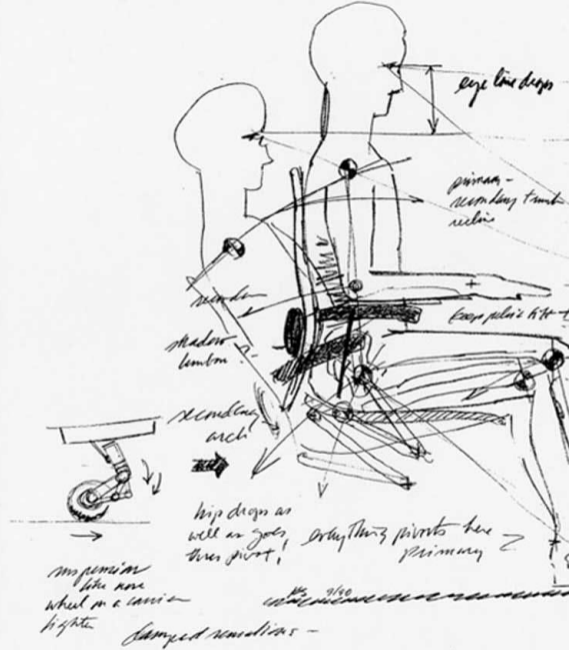 eye line drops
primary-
secondary trunk
recline
Keep pelvic tilt
shadow
lumbar
secondary
arch
hip drops as
well as goes
thru pivot!
everything pivots here
primary
suspension
like nose
wheel on a carrier
fighter
9/90
damped sensations -